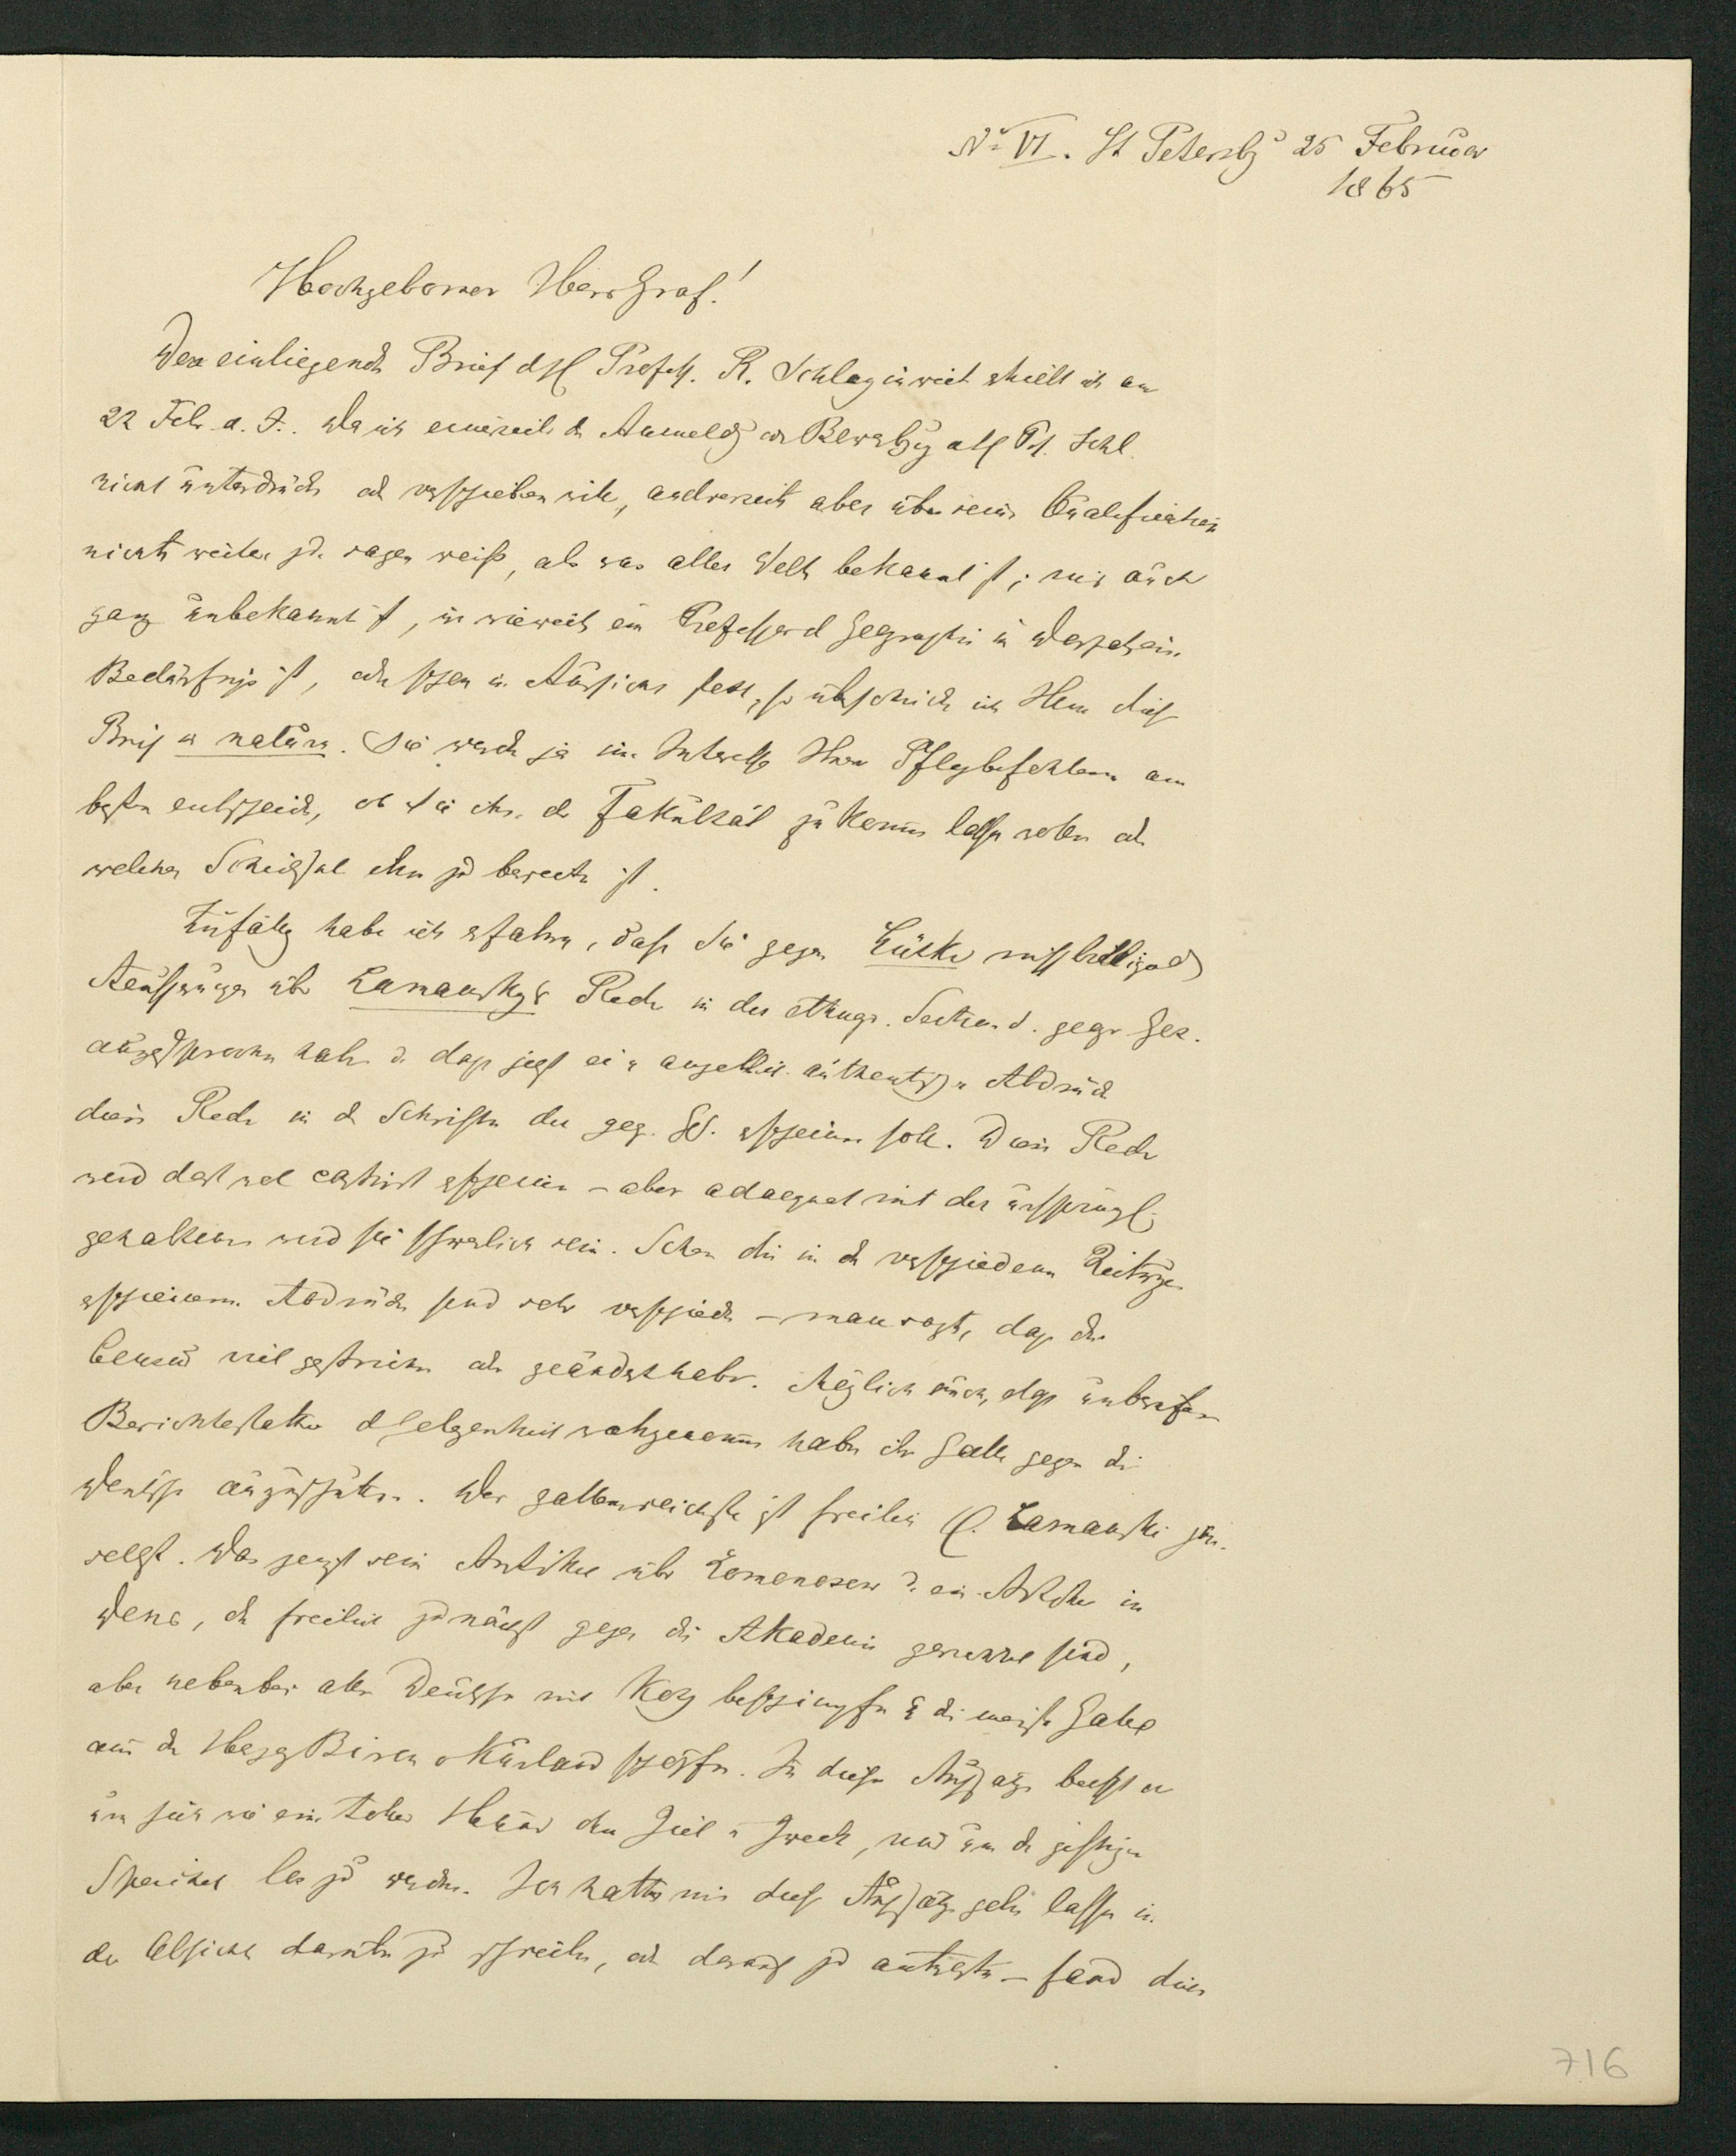 No VI. St Petersbg 25 Februar
1865
Hochgeborner Herr Graf!
Den einliegenden Brief des Profess. R. Schlagintweit erhielt ich am
22 Febr. a. St. Da ich einerseits die Anmeldg od Bewerbg des Pr. Schl.
nicht unterdrücken od verschieben will, andrerseits aber über seine Qualification
nichts weiter zu sagen weiß, als was aller Welt bekannt ist; mir auch
ganz unbekannt ist, in wieweit ein Professor d Geographie in Dorpat ein
Bedürfniß ist, oder schon in Aussicht steht, so überschicke ich Ihnen diesen
Brief in natura. Sie werden ja im Interesse Ihrer Pflegbefohlenen am
besten entscheiden, ob Sie ihn der Fakultät zukommen lassen wollen od
welches Schicksal ihm zu bereiten ist.
Zufällig habe ich erfahren, dass Sie gegen Lütke missbilligende
Aeusserungen über Lamansky's Rede in der ethnogr. Section d. geogr Ges.
ausgesprochen haben u. dass jetzt ein angeblich authentischer Abdruck
dieser Rede in den Schriften der geog. Ges. erscheinen soll. Diese Rede
wird dort wol castrirt erscheinen – aber adaequat mit der ursprüngl.
gehaltenen wird sie schwerlich sein. Schon die in den verschiedenen Zeitungen
erschienenen Abdrücke sind sehr verschieden – man sagt, dass die
Censur viel gestrichen oder geändert habe. Möglich auch, dass unberufene
Berichterstatter d Gelegenheit wahrgenommen haben ihre Galle gegen die
Deutschen auszuschütten. Der gallenreichste ist freilich H. Lamanski jun.
selbst. Das zeigt sein Artikel über Lomonosow u. ein Artikel in
Denь, die freilich zunächst gegen die Akademie gerichtet sind,
aber nebenbei alle Deutsche mit Koth beschimpfen & die meiste Galle
aus dem Herzog Biren v Kurland schöpfen. In diesen Aufsätzen beisst er
um sich wie ein toller Hund ohne Ziel u Zweck, nur um den giftigen
Speichel los zu werden. Ich hatte mir diese Aufsätze geben lassen in
der Absicht darüber zu schreiben, od darauf zu antworten – fand diese
716